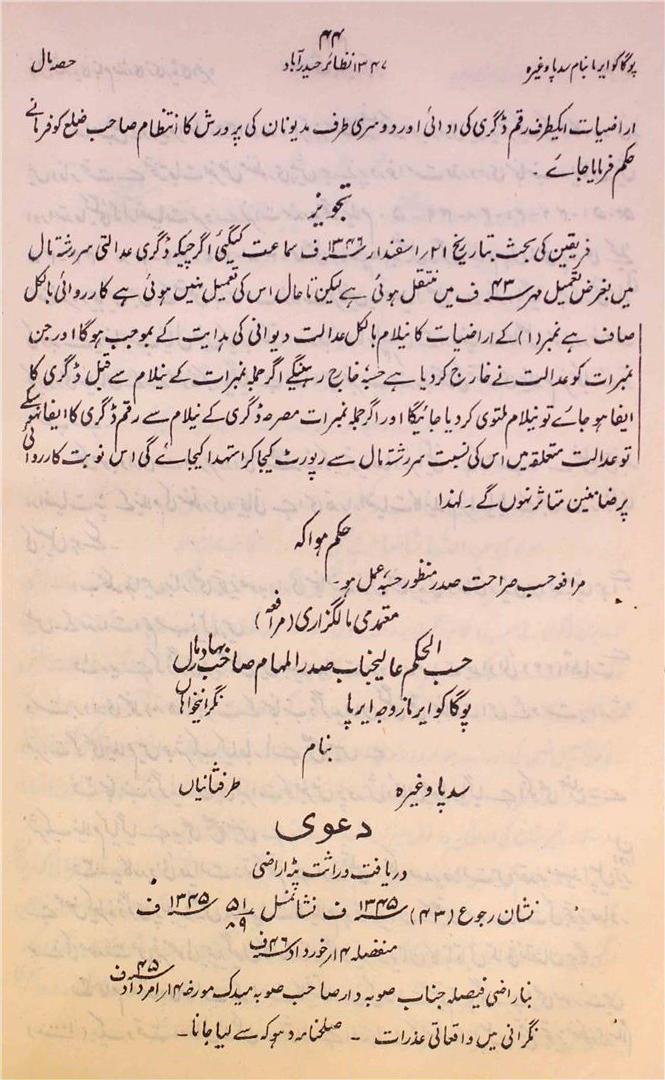 ۴۴
پوگا کوایرما بنام سدپا وغیرہ ۱۳۴۷ نظائر حیدرآباد حصہ مال
اراضیات ایکطرف رقم ڈگری کی ادائی اور دوسری طرف مدیونان کی پرورش کا انتظام صاحب ضلع کو فرمانے
حکم فرمایا جائے ۔
تجویز
فریقین کی بحث بتاریخ ۲۱ اسفندار ۱۳۴۶ ف سماعت کیگئی اگرچیکہ ڈگری عدالتی سررشتہ مال
میں بغرض تعمیل مہر ۴۳ ف میں منتقل ہوئی ہے لیکن تا حال اس کی تعمیل نہیں ہوئی ہے کارروائی بالکل
صاف ہے نمبر (۱) کے اراضیات کا نیلام بالکل عدالت دیوانی کی ہدایت کے بموجب ہوگا اور جن
نمبرات کو عدالت نے خارج کردیا ہے حسبہٗ خارج رہینگے اگر جملہ نمبرات کے نیلام سے قبل ڈگری کا
ایفا ہو جائے تو نیلام ملتوی کردیا جائیگا اور اگر جملہ نمبرات مصرحہ ڈگری کے نیلام سے رقم ڈگری کا ایفا نہ ہوسکے
تو عدالت متعلقہ میں اس کی نسبت سررشتہ مال سے رپورٹ کیجا کر استہدا کیجائے گی اس نوبت کارروائی
پر ضامنین متاثر نہوں گے ۔ لہذا
حکم ہوا کہ
مرافعہ حسب صراحت صدر منظور حسبہٗ عمل ہو ۔
معتمدی مالگزاری (مرافعہ)
حسب الحکم عالیجناب صدر المہام صاحب بہادر مال
پوگا کوایرما زوجہ ایرپا نگرانیخواہاں
بنام
سدپا وغیرہ طرفثانیان
دعوی
دریافت وراثت پٹہ اراضی
نشان رجوع (۴۳) ۱۳۴۵ ف نشانمسل ۵۱/۸۹ ۱۳۴۵ ف
منفصلہ ۴ ار خورداد ۴۶ ف
بناراضی فیصلہ جناب صوبہ دار صاحب صوبہ میدک مورخہ ۴ ار امرداد ۴۵ ف
نگرانی میں واقعاتی عذرات ۔ صلحنامہ دہوکہ سے لیا جانا ۔